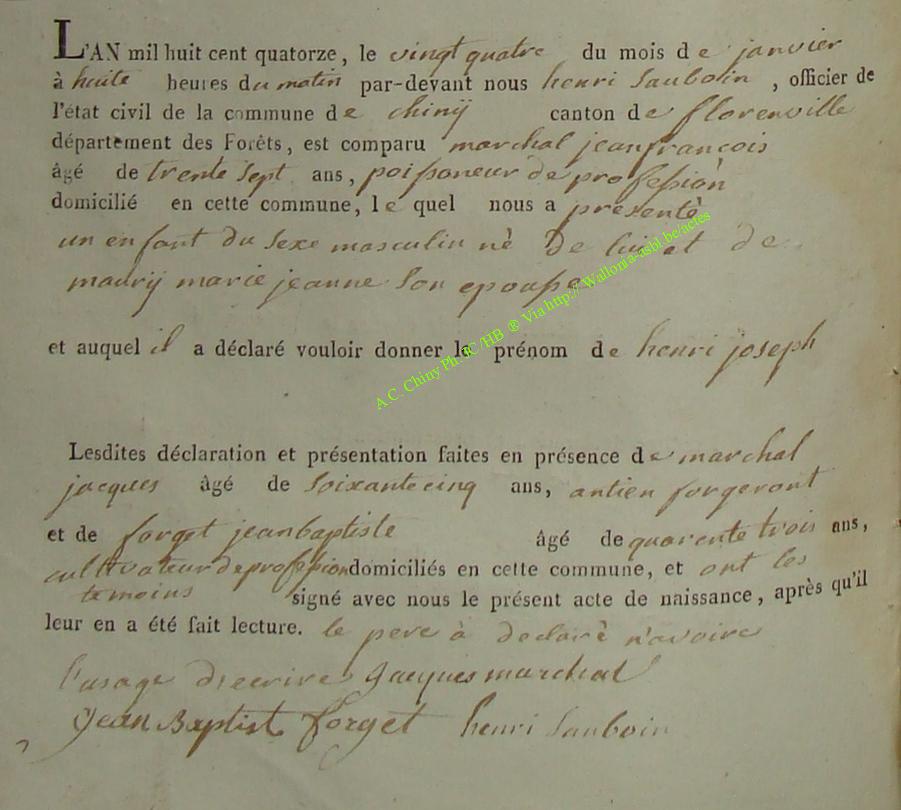 L'AN mil huit cent quatorze, le vingt quatre du mois de janvier
à huite heures du matin par-devant nous henri Sauboin, officier de
l'état civil de la commune de chinÿ canton de florenville
département des Forêts, est comparu marchal jeanfrancois
âgé de trente Sept ans, poissoneur de profession
domicilié en cette commune, le quel nous a presentè
un enfant du Sexe masculin nè de lui et de
maury marie jeanne Son epousse
et auquel il a déclaré vouloir donner le prénom de henri joseph
Lesdites déclaration et présentation faites en présence de marchal
jacques âgé de Soixante cinq ans, antien forgeront
et de forget jeanbaptiste âgé de quarente trois ans,
cultivateur de profession domiciliés en cette commune, et ont les
temoins signé avec nous le présent acte de naissance, après qu'il
leur en a été fait lecture. le pere à declarè n'avoire
l'usage d'ecrire Jacques marchal
Jean Baptist forget henri Sauboin
A.C. Chiny Ph JC/HB ® Via http://Wallonia-asbl.be/actes